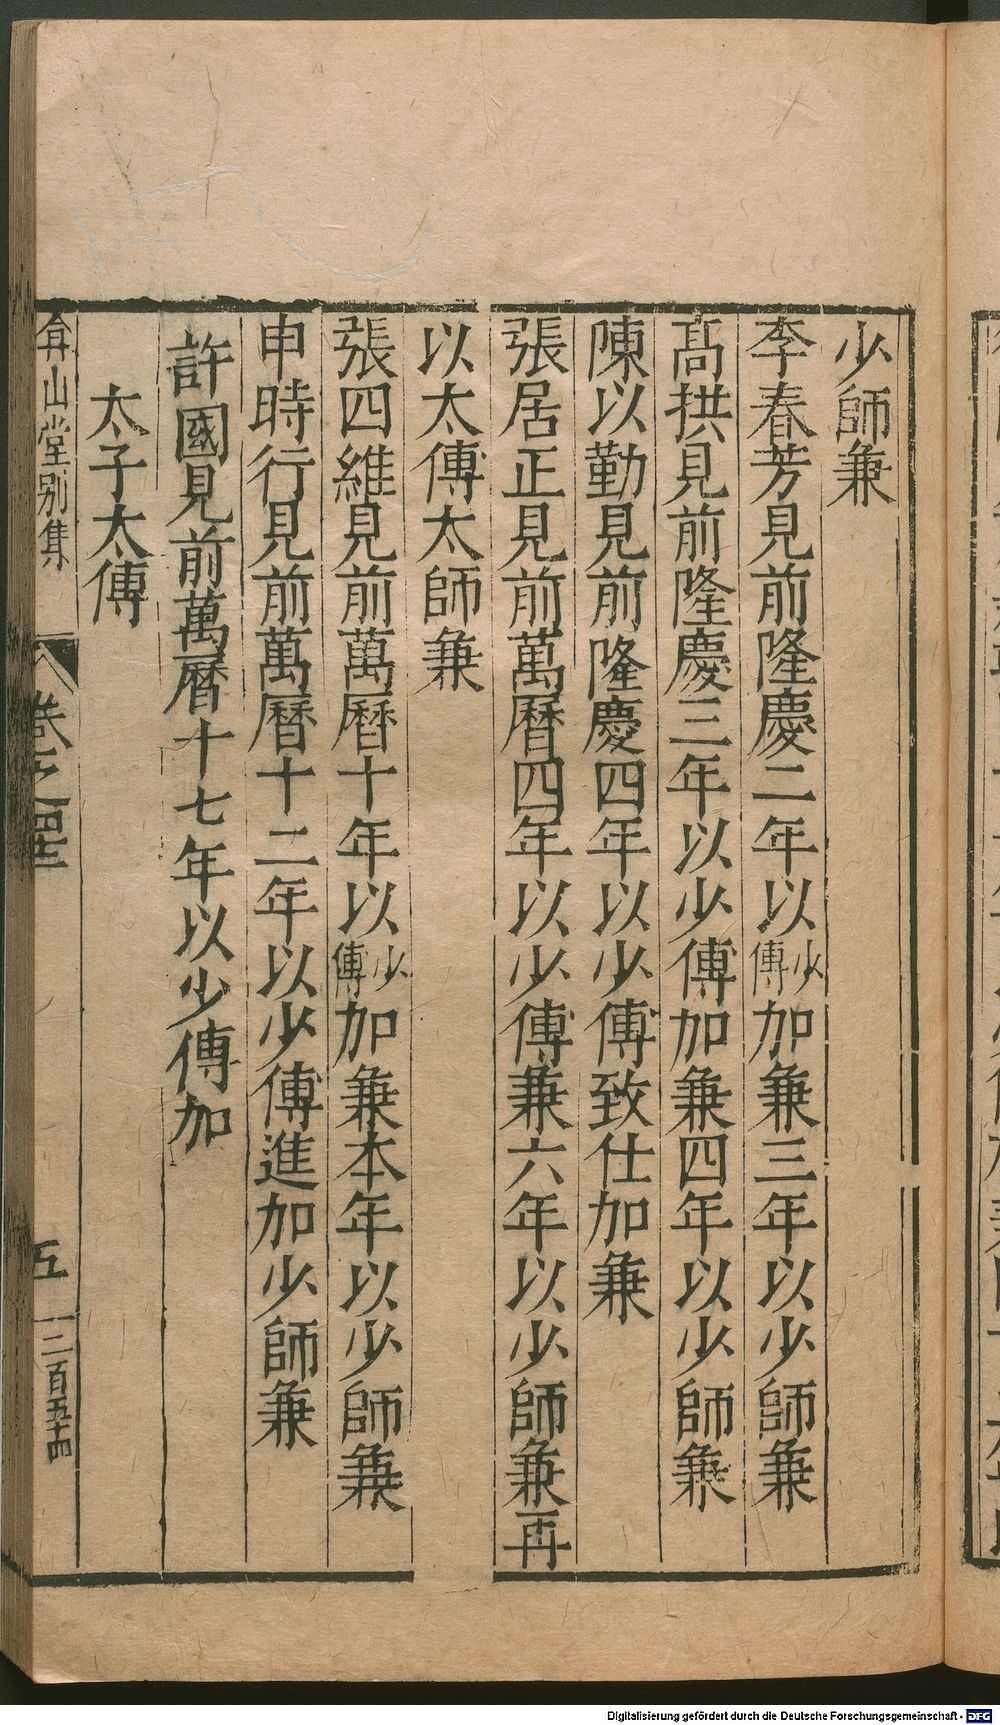 少師兼
李春芳見前隆慶二年以少傅加兼三年以少師兼
髙拱見前隆慶三年以少傅加兼四年以少師兼
陳以勤見前隆慶四年以少傅致仕加兼
張居正見前萬曆四年以少傅兼六年以少師兼再
以太傅太師兼
張四維見前萬曆十年以少傅加兼本年以少師兼
申時行見前萬曆十二年以少傅進加少師兼
許國見前萬曆十七年以少傅加
太子太傅
弇山堂别集
卷之
五
三百五十四
Digitalisierung gefördert durch die Deutsche Forschungsgemeinschaft - DFG